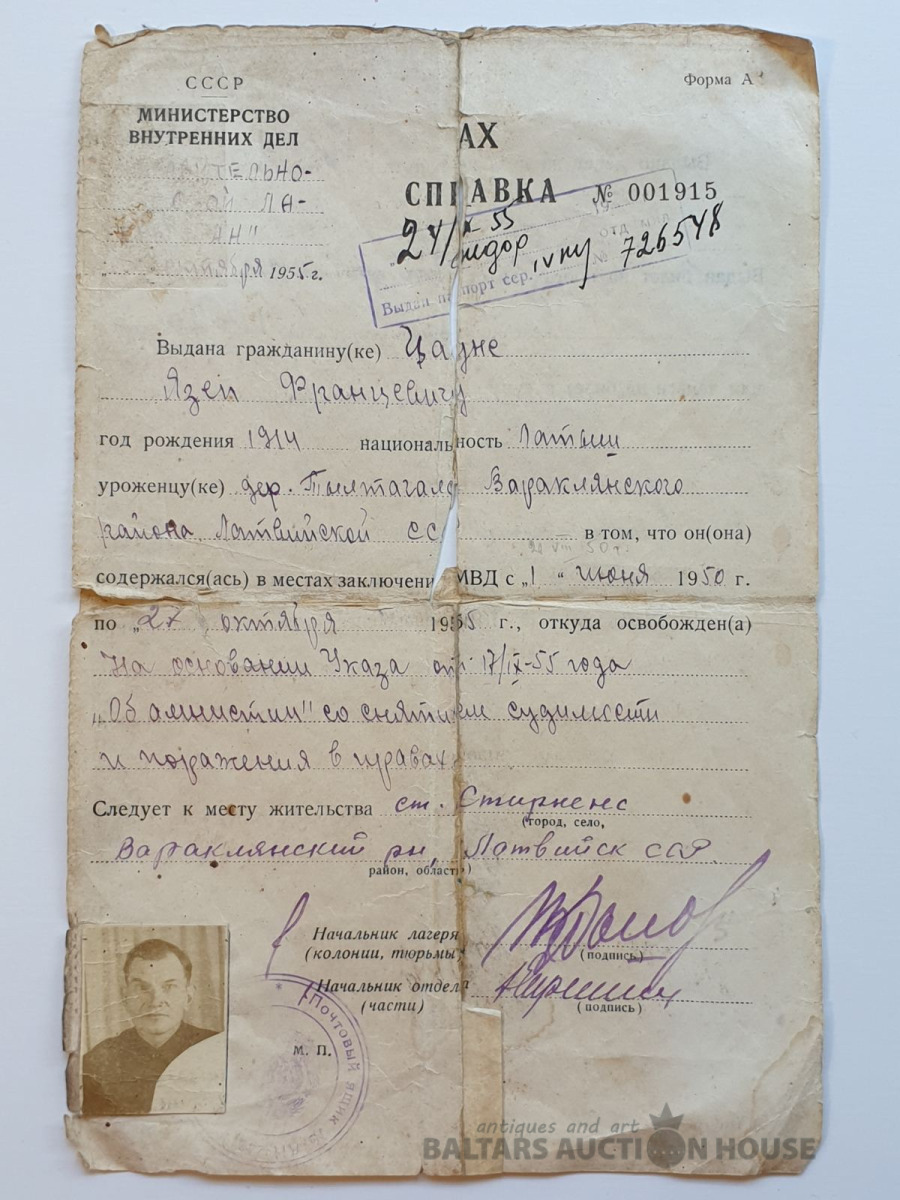 СССР
Форма А
МИНИСТЕРСТВО
ВНУТРЕННИХ ДЕЛ
ТЕЛЬНО-
ОЙ ЛА-
АН"
АХ
СПРАВКА № 001915
1955 г.
24/X 55
отд
Выдан паспорт сер. IV ПУ № 726548
Выдана гражданину(ке) Цауне
Язеп Францевичу
год рождения 1914 национальность Латыш
уроженцу(ке) дер. Вараклянского
района Латвийской СС в том, что он(она)
содержался(ась) в местах заключени МВД с „1" июня 1950 г.
по „27 октября 1955 г., откуда освобожден(а)
На основании Указа от 17/IX-55 года
„Об амнистии" со снятием судимости
и поражения в правах
Следует к месту жительства ст. Стирнене
(город, село,
Вараклянский рн, Латвийск ССР
район, область)
Начальник лагеря
(колонии, тюрьмы)
(подпись)
Начальник отдела
(части)
(подпись)
М. П.
ПОЧТОВЫЙ ЯЩИК
antiques and art
BALTARS AUCTION HOUSE